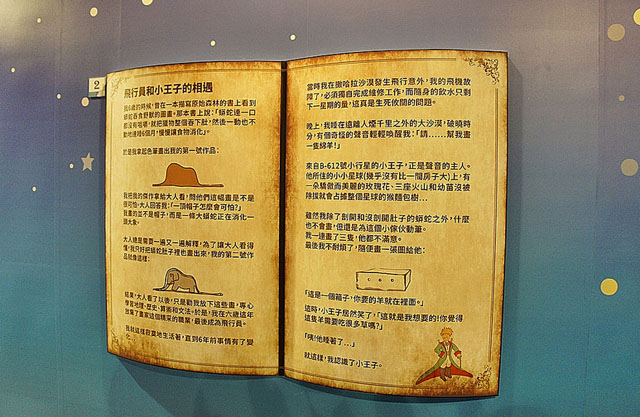 2
飛行員和小王子的相遇
我6歲的時候，曾在一本描寫原始森林的書上看到
蟒蛇吞食野獸的圖畫，那本書上說：「蟒蛇連一口
都沒有咀嚼，就把獵物整個吞下肚，然後一動也不
動地連睡6個月，慢慢讓食物消化」。
於是我拿起色筆畫出我的第一號作品：
我把我的傑作拿給大人看，問他們這幅畫是不是
很可怕，大人回答我：「一頂帽子怎麼會可怕?」
我畫的並不是帽子，而是一條大蟒蛇正在消化一
頭大象。
大人總是需要一遍又一遍解釋，為了讓大人看得
懂，我只好把蟒蛇肚子裡也畫出來，我的第二號作
品就像這樣：
結果，大人看了以後，只是勸我放下這些畫，專心
學習地理、歷史、算術和文法。於是，我在六歲這年
放棄了畫家這個精采的職業，最後成為飛行員。
我就這樣寂寞地生活著，直到6年前事情有了變
化…
當時我在撒哈拉沙漠發生飛行意外，我的飛機故
障了，必須獨自完成維修工作，而隨身的飲水只剩
下一星期的量，這真是生死攸關的問題。
晚上，我睡在遠離人煙千里之外的大沙漠，破曉時
分，有個奇怪的聲音輕輕喚醒我：「請……幫我畫
一隻綿羊!」
來自B-612號小行星的小王子，正是聲音的主人。
他所住的小小星球(幾乎沒有比一間房子大)上，有
一朵驕傲而美麗的玫瑰花、三座火山和幼苗沒被
除拔就會占據整個星球的猴麵包樹…
雖然我除了剖開和沒剖開肚子的蟒蛇之外，什麼
也不會畫，但還是為這個小傢伙動筆。
我一連畫了三隻，他都不滿意。
最後我不耐煩了，隨便畫一張圖給他：
「這是一個箱子，你要的羊就在裡面。」
這時，小王子居然笑了，「這就是我想要的!你覺得
這隻羊需要吃很多草嗎?」
「咦!他睡著了…」
就這樣，我認識了小王子。